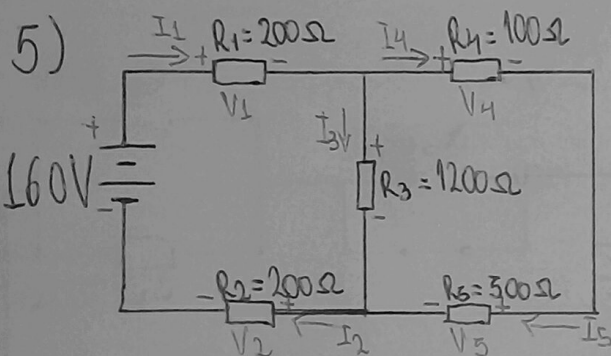 5)
I1 + R1=200Ω -
I4 + R4=100Ω -
V1
V4
+
160V
-
I3 +
R3=1200Ω
-
- R2=200Ω +
V2
I2
- R5=500Ω +
V5
I5